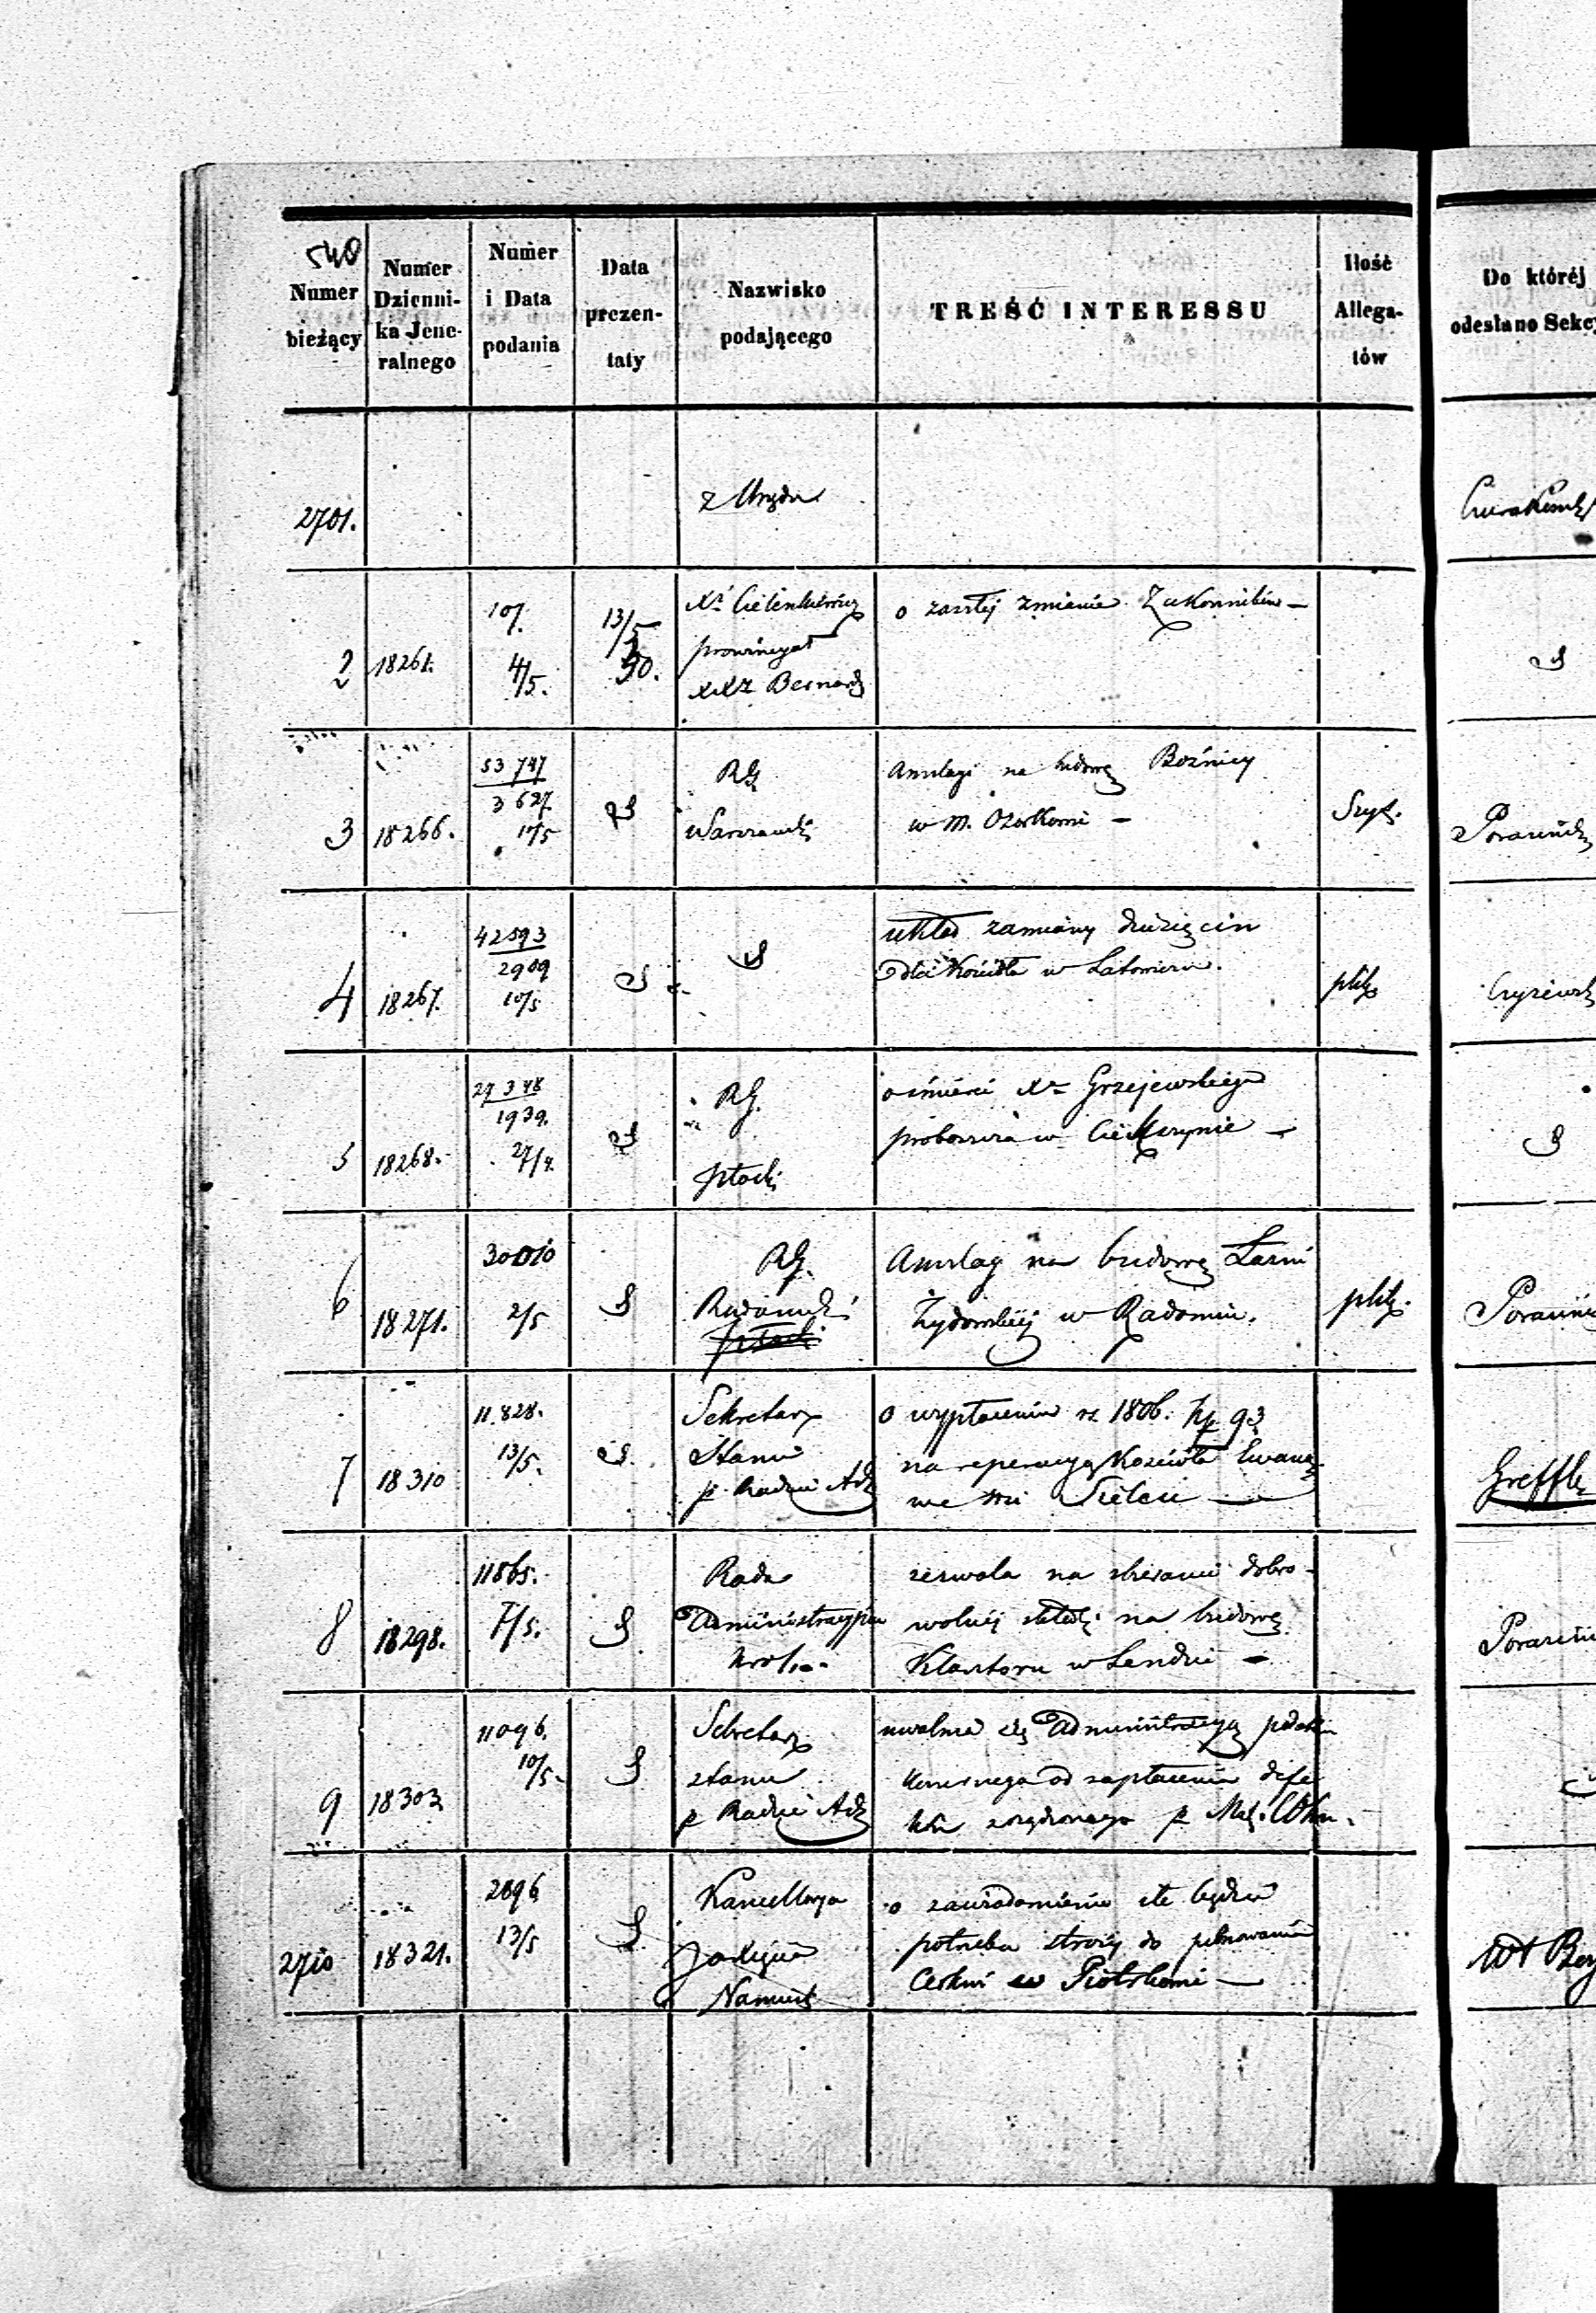 540
Numer bieżący
Numer Dzienni-ka Jene-ralnego
Numer i Data podania
Data prezen-taty
Nazwisko podającego
TREŚĆ INTERESSU
Ilość Allega-tów
Do któréj odesłano Sekcy
2701.
z Urzędu
2
18261.
107.
4/5.
13/5
50.
prowincyał
XXZ Bernard
o zaszłej zmianie Zakonników —
3
18266.
53 747
3 627
10/5
RG
Warszawski
Anszlagi na budowę Bożnicy
w m. Ozorkowie —
Szyt.
4
18267.
42593
2909
10/5
układ zamiany dziesięcin
dla Kościoła w
plik
5
18268.
29 348
1939.
27/4.
RG.
Płocki
o śmierci Xa Grzejewskiego
proboszcza w —
6
18271.
30010
2/5
RG.
Radomski
Anszlag na budowę Łaźni
Żydowskiej w Radomiu.
plik.
7
18310
11.828.
13/5.
Sekretarz
Stanu
p Radzie Ad
o wypłacenie rs 1806. kp 93
na reperacyą Kościoła Ewang
we wsi
Greffle
8
18298.
11865.
7/5.
Rada
Administracyjna
Król.
zezwala na zbieranie dobro-
wolnej składki na budowę
Klasztoru w Lendzie —
9
18303
11096.
10/5.
Sekretarz
stanu
p Radzie Ad
uwalnia się Administracyą
od zapłacenia defe
ktu zrządzonego p
2710
18321.
2696
13/5
Kancellarya
Namies
o zawiadomienie ile będzie
potrzeba stróży do pilnowania
Cerkwi w Piotrkowie —